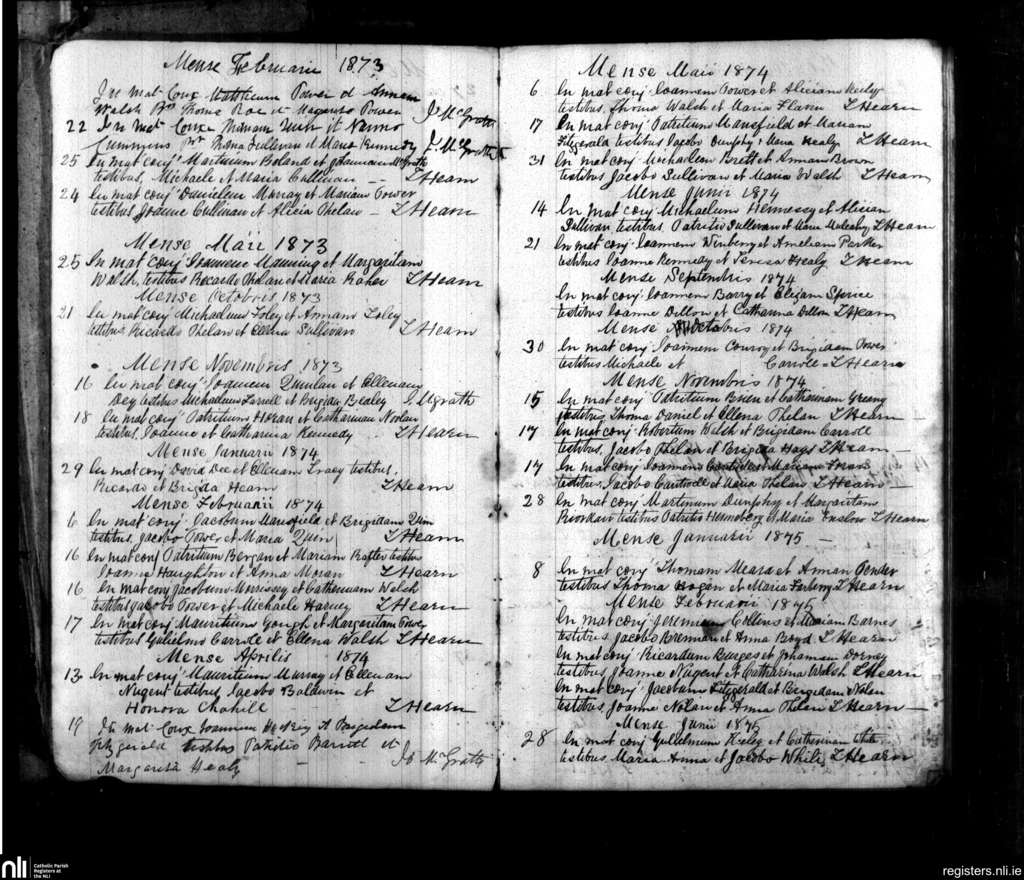 Mense Februarii 1873
In mat Conx Power et Annam
Walsh Thoma Roe et Margarita Power J. McGrath
22 In mat Conx Thomam et
Cummins Thoma Sullivan et Maria Kennedy J. McGrath
25 In mat conj Martinum Boland et Johannam McGrath
testibus, Michaele et Maria Cullinan — L Hearn
24 In mat conj Danielem Murray et Mariam Power
testibus Joanne Cullinan et Alicia Phelan — L Hearn
Mense Maii 1873
25 In mat conj Joannem Manning et Margaritam
Walsh, testibus Ricardo Phelan et Maria L Hearn
Mense Octobris 1873
21 In mat conj Michaelem Foley et Annam Foley
testibus Ricardo Phelan et Ellena Sullivan L Hearn
Mense Novembris 1873
16 In mat conj Joannem Quinlan et Ellenam
Dey testibus Michaelem Farrell et Brigida Bealey J. Mgrath
18 In mat conj Patritium Horan et Catharinam Nolan
testibus, Joanne et Catharina Kennedy L Hearn
Mense Januarii 1874
29 In mat conj David Dee et Ellenam Tracy testibus,
Ricardo et Brigida Hearn L Hearn
Mense Februarii 1874
6 In mat conj Jacobum Mansfield et Brigidam Quin
testibus Jacobo Power et Maria Quin L Hearn
16 In mat conj Patritium Bergan et Mariam Rafter testibus
Joanne Haughton et Anna Moran L Hearn
16 In mat conj Jacobum Morrissey et Catherinam Walsh
testibus Jacobo Power et Michaele Harney L Hearn
17 In mat conj Mauritium Gough et Margaritam Power
testibus Gulielmo Carrole et Ellena Walsh L Hearn
Mense Aprilis 1874
13 In mat conj Mauritium Murray et Ellenam
Nugent testibus Jacobo Baldwin et
Honora Chahill L Hearn
19 In mat Conx Joannem et Brigidam
Fitzgerald testibus Patritio Barrett et
Margarita Healy McGrath
Mense Maii 1874
6 In mat conj Joannem Power et Aliciam Kiely
testibus, Thoma Walsh et Maria Flavin L Hearn
17 In mat conj Patritium Mansfield et Mariam
Fitzgerald testibus Jacobo Dunphy et Maria Healy L Hearn
31 In mat conj Michaelem Brett et Annam Brown
testibus Jacobo Sullivan et Maria Walsh L Hearn
Mense Junii 1874
14 In mat conj Michaelem Hennessy et Aliciam
Sullivan testibus Patritio Sullivan et Maria Mulcahy L Hearn
21 In mat conj Joannem Winberry et Ameliam Parker
testibus Joanne Kennedy et Teresa Healy L Hearn
Mense Septembris 1874
In mat conj Joannem Barry et Elizam Spence
testibus Joanne Dillon et Catharina Dillon L Hearn
Mense Octobris 1874
30 In mat conj Joannem Conroy et Brigidam Power
testibus Michaele et Carrole - L Hearn
Mense Novembris 1874
15 In mat conj Patritium Brien et Catharinam Greany
testibus, Thoma Daniel et Ellena Phelan L Hearn
17 In mat conj Robertum Walsh et Brigidam Carroll
testibus, Jacobo Phelan et Brigida Hays L Hearn —
17 In mat conj Joannem et Mariam
testibus, Jacobo Cantwell et Maria Phelan L Hearn
28 In mat conj Martinum Dunphy et Margaritam
Riordan testibus Patritio Henneberry et Maria L Hearn
Mense Januarii 1875 —
8 In mat conj Thomam Meara et Annam Pender
testibus Thoma Hogan et Maria L Hearn
Mense Februarii 1875
In mat conj Jeremiam Collins et Mariam Barnes
testibus Jacobo Brennan et Anna Boyd L Hearn
In mat conj Ricardum Burges et Johannam
testibus Joanne Nugent et Catharina Walsh L Hearn
In mat conj Jacobum Fitzgerald et Brigidam Nolan
testibus, Joanne Nolan et Anna Phelan L Hearn —
Mense Junii 1875
28 In mat conj Gulielmum Kiely et Catherinam White
testibus Maria Anna et Jacobo White, L Hearn
nli Catholic Parish Registers at the NLI
registers.nli.ie